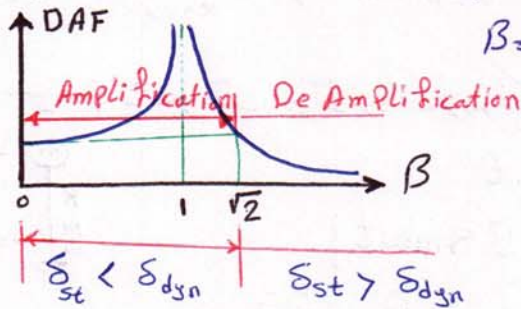 DAF
β=
Amplification De Amplification
β
0 1 √2
δst < δdyn δst > δdyn